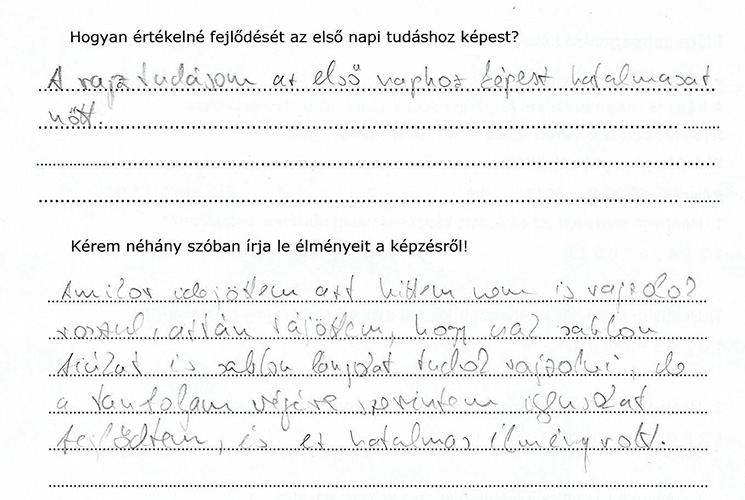 Hogyan értékelné fejlődését az első napi tudáshoz képest?
A rajz tudásom az első naphoz képest hatalmasat
nőtt.
Kérem néhány szóban írja le élményeit a képzésről!
Amikor idejöttem azt hittem nem is rajzolok
rosszul, aztán rájöttem, hogy csak sablon
fiúkat és sablon lányokat tudok rajzolni, de
a tanfolyam végére szerintem igen sokat
fejlődtem, és ez hatalmas élmény volt.